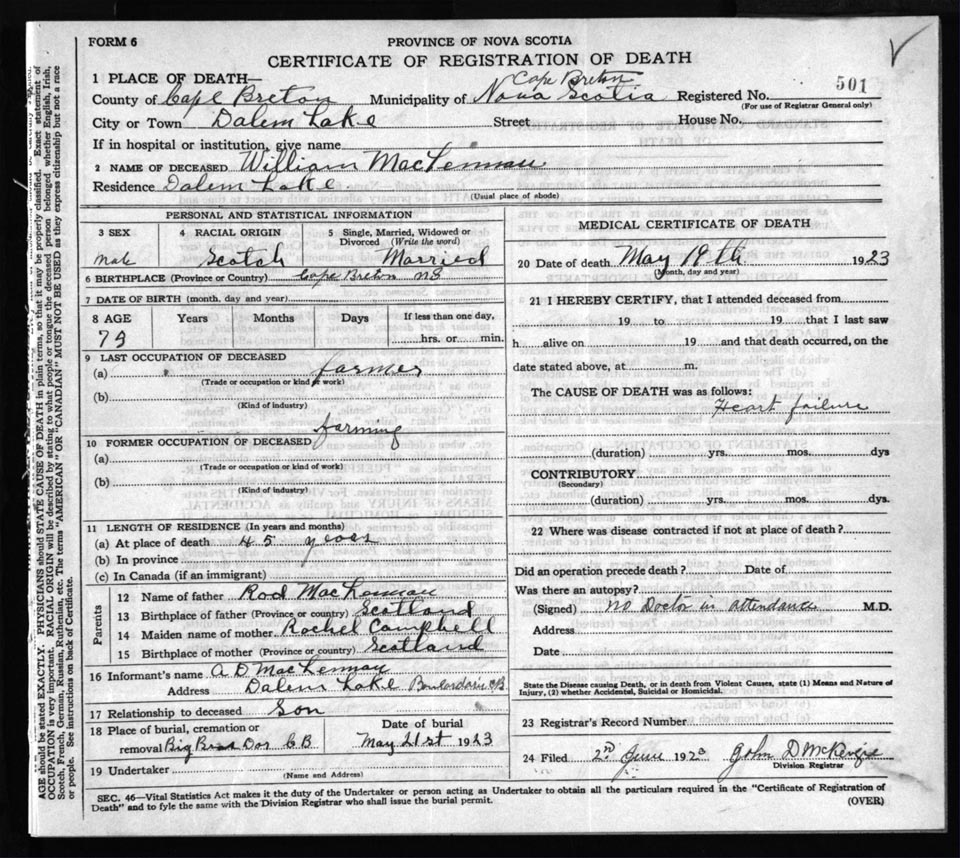 FORM 6
PROVINCE OF NOVA SCOTIA
CERTIFICATE OF REGISTRATION OF DEATH
501
1 PLACE OF DEATH—
Cape Breton
County of Cape Breton Municipality of Nova Scotia Registered No.
(For use of Registrar General only)
City or Town Dalem Lake Street House No.
If in hospital or institution, give name
2 NAME OF DECEASED William MacLennan
Residence Dalem Lake
(Usual place of abode)
PERSONAL AND STATISTICAL INFORMATION
3 SEX 4 RACIAL ORIGIN 5 Single, Married, Widowed or Divorced (Write the word)
Male Scotch Married
6 BIRTHPLACE (Province or Country) Cape Breton NS
7 DATE OF BIRTH (month, day and year)
8 AGE Years Months Days If less than one day,
79 hrs. or min.
9 LAST OCCUPATION OF DECEASED
(a) farmer
(Trade or occupation or kind of work)
(b)
(Kind of industry)
farming
10 FORMER OCCUPATION OF DECEASED
(a)
(Trade or occupation or kind of work)
(b)
(Kind of industry)
11 LENGTH OF RESIDENCE (In years and months)
(a) At place of death 45 years
(b) In province
(c) In Canada (if an immigrant)
Parents
12 Name of father Rod MacLennan
13 Birthplace of father (Province or country) Scotland
14 Maiden name of mother Rachel Campbell
15 Birthplace of mother (Province or country) Scotland
16 Informant's name A D MacLennan
Address Dalem Lake Boularderie CB
17 Relationship to deceased Son
18 Place of burial, cremation or Date of burial
removal Big Bras Dor CB May 21st 1923
19 Undertaker
(Name and Address)
MEDICAL CERTIFICATE OF DEATH
20 Date of death May 19th 1923
(Month, day and year)
21 I HEREBY CERTIFY, that I attended deceased from
19 to 19 that I last saw
h alive on 19 and that death occurred, on the
date stated above, at m.
The CAUSE OF DEATH was as follows:
Heart failure
(duration) yrs. mos. dys
CONTRIBUTORY
(Secondary)
(duration) yrs. mos. dys.
22 Where was disease contracted if not at place of death?
Did an operation precede death? Date of
Was there an autopsy?
(Signed) no Doctor in attendance M.D.
Address
Date
State the Disease causing Death, or in death from Violent Causes, state (1) Means and Nature of
Injury, (2) whether Accidental, Suicidal or Homicidal.
23 Registrar's Record Number
24 Filed 2nd June 1923 John D McKenzie
Division Registrar
SEC. 46—Vital Statistics Act makes it the duty of the Undertaker or person acting as Undertaker to obtain all the particulars required in the "Certificate of Registration of
Death" and to fyle the same with the Division Registrar who shall issue the burial permit.
(OVER)
AGE should be stated EXACTLY. PHYSICIANS should STATE CAUSE OF DEATH in plain terms, so that it may be properly classified. Exact statement of
OCCUPATION is very important. RACIAL ORIGIN will be described by stating to what people or tongue the deceased person belonged whether English, Irish,
Scotch, French, German, Russian, Ruthenian, etc. The terms "AMERICAN" OR "CANADIAN" MUST NOT BE USED as they express citizenship but not a race
or people. See instructions on back of Certificate.